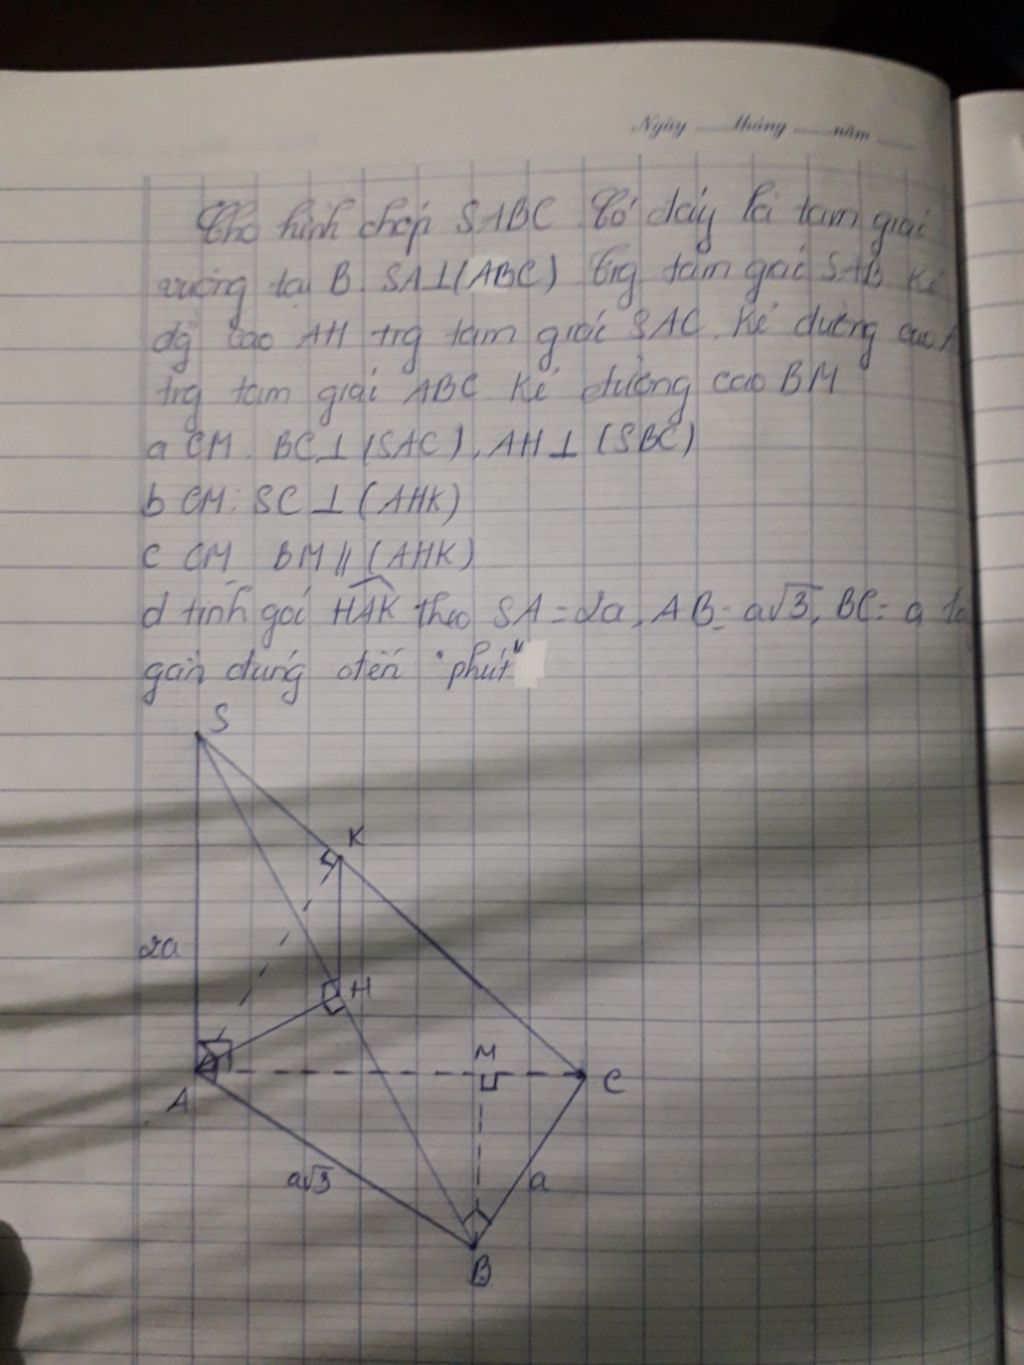 Ngày ........tháng ........năm ......
Cho hình chóp SABC Có đáy là tam giác
vuông tại B. SA⊥(ABC) Trg tam giác SAB Kẻ
đg cao AH trg tam giác SAC. Kẻ đường cao
trg tam giác ABC Kẻ đường cao BM
a CM. BC⊥(SAC), AH⊥(SBC)
b CM: SC⊥(AHK)
c CM BM//(AHK)
d tính góc HAK theo SA=2a, AB=a√3, BC=a
gần đúng đến "phút"
S
K
2a
H
M
A
C
a√3
a
B